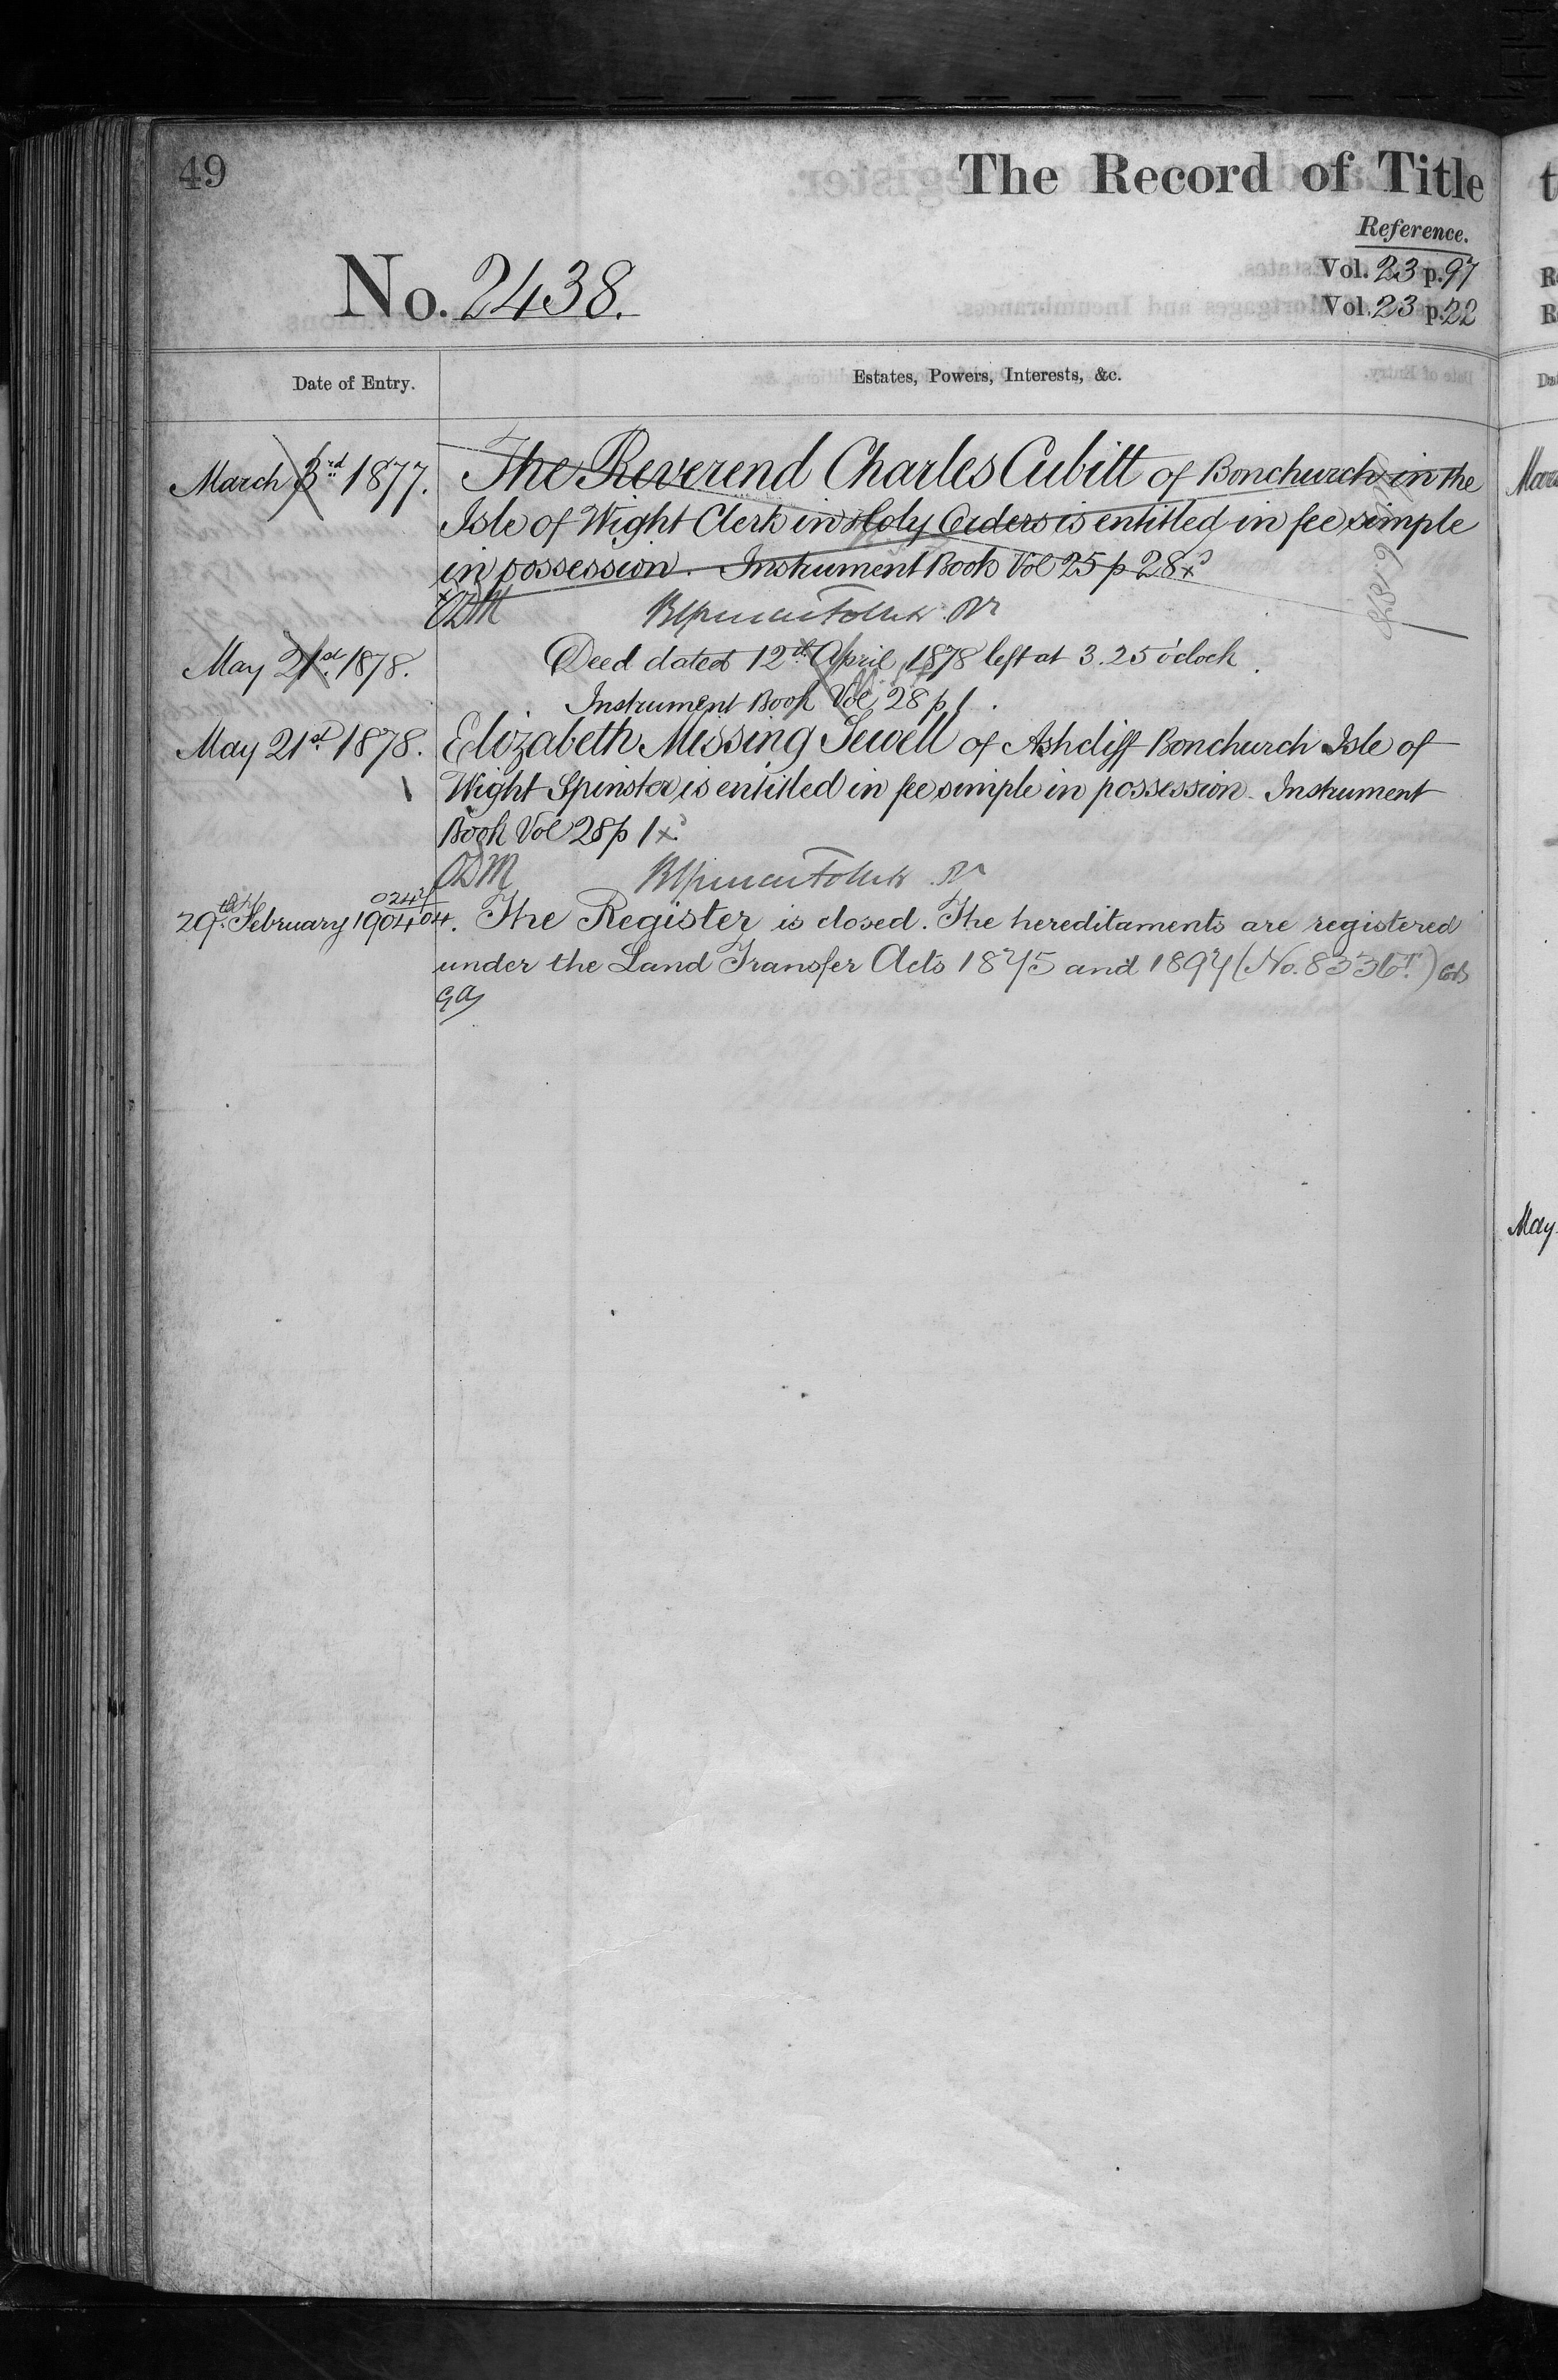 49
The Record of Title
Reference.
Vol. 23 p. 97
Vol. 23 p. 22
No. 2438.
Date of Entry.
Estates, Powers, Interests, &c.
March 3rd 1877.
The Reverend Charles Cubitt of Bonchurch in the
Isle of Wight Clerk in Holy Orders is entitled in fee simple
in possession. Instrument Book Vol 25 p 28 x
May 21st 1878.
Deed dated 12th April 1878 left at 3.25 o'clock.
Instrument Book Vol 28 p 1.
May 21st 1878.
Elizabeth Missing Sewell of Ashcliff Bonchurch Isle of
Wight Spinster is entitled in fee simple in possession. Instrument
Book Vol 28 p 1 x
29th February 1904.
The Register is closed. The hereditaments are registered
under the Land Transfer Acts 1875 and 1897 (No. )